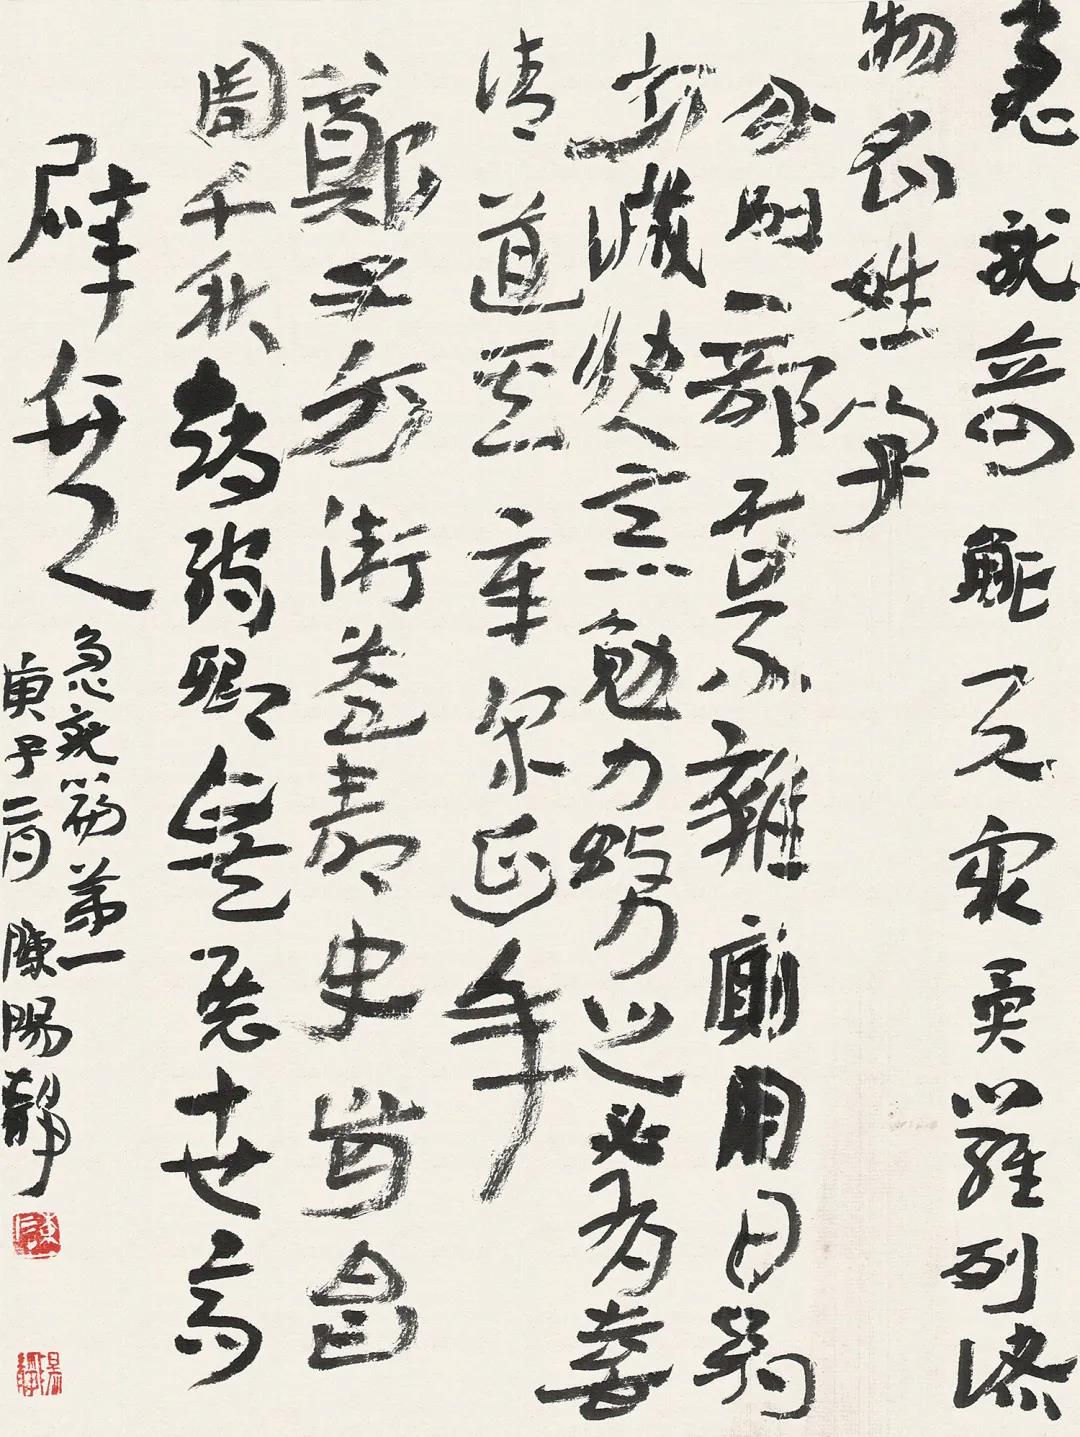 急就奇觚与眾異羅列諸
物名姓字
分別部居不雜廁用日約
少誠快意勉力務之必有喜
請道其章宋延年
鄭子方衛益壽史步昌
周千秋趙孺卿爰展世高
辟兵
急就篇第一
庚子二月 陳陽靜